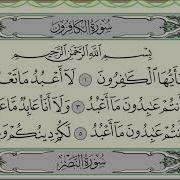 سُورَةُ الكَافِرُونَ
بِسْمِ اللَّهِ الرَّحْمَٰنِ الرَّحِيمِ
يَٰٓأَيُّهَا ٱلْكَٰفِرُونَ ١ لَآ أَعْبُدُ مَا تَعْ
نتُمْ عَٰبِدُونَ مَآ أَعْبُدُ ٣ وَلَآ أَنَا۠ عَابِدٌ مَّا عَ
نتُمْ عَٰبِدُونَ مَآ أَعْبُدُ ٥ لَكُمْ دِينُكُمْ وَ
سُورَةُ النَّصْرِ